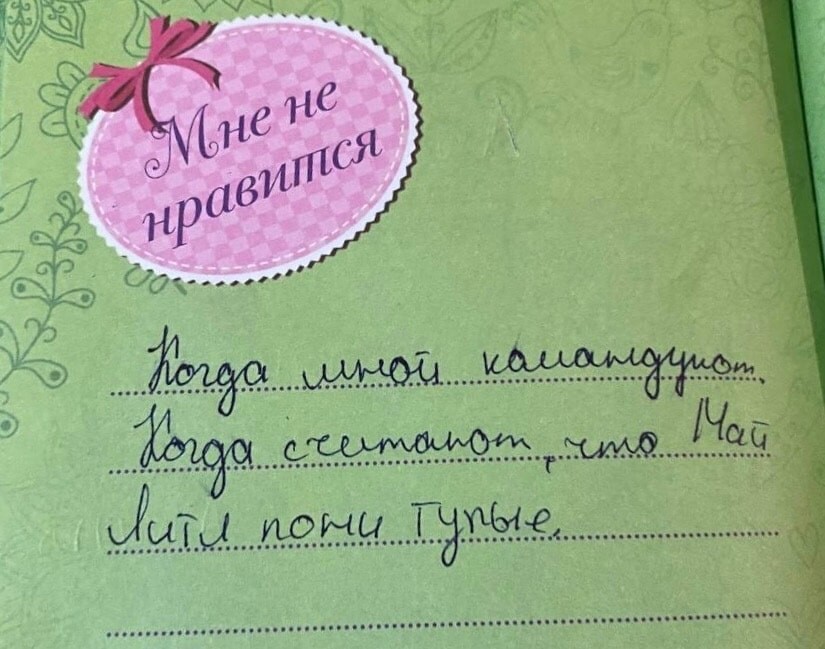 Мне не
нравится
Когда мной командуют.
Когда считают, что Май
Литл пони тупые.